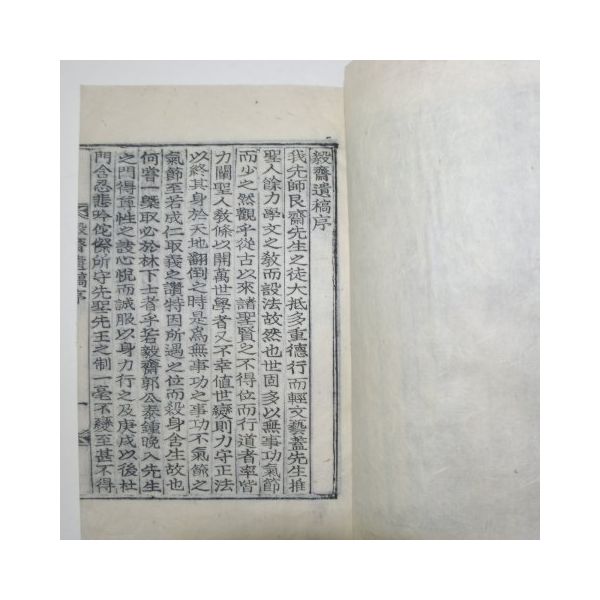 毅齋遺稿序
我先師艮齋先生之徒大抵多重德行而輕文藝蓋先生推
聖人餘力學文之敎而設法故然也世固多以無事功氣節
而少之然觀乎從古以來諸聖賢之不得位而行道者率皆
力闢聖人敎條以開萬世學者又不幸値世變則力守正法
以終其身於天地翻倒之時是爲無事功之事功不氣節之
氣節至若成仁取義之讚特因所遇之位而殺身舍生故也
何嘗一槩取必於林下士者乎若毅齋郭公泰鍾晩入先生
之門得尊性之訣心悅而誠服以身力行之及庚戌以後杜
門含忍悲吟侘傺所守先聖先王之制一毫不變至甚不得
毅齋遺稿序
一